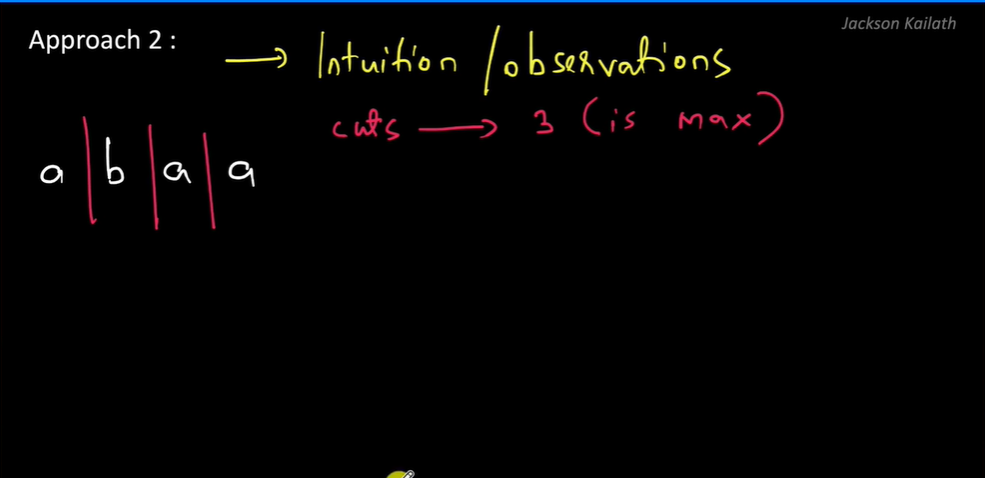 Jackson Kailath
Approach 2 :
→ Intuition / observations
cuts → 3 (is max)
a | b | a | a